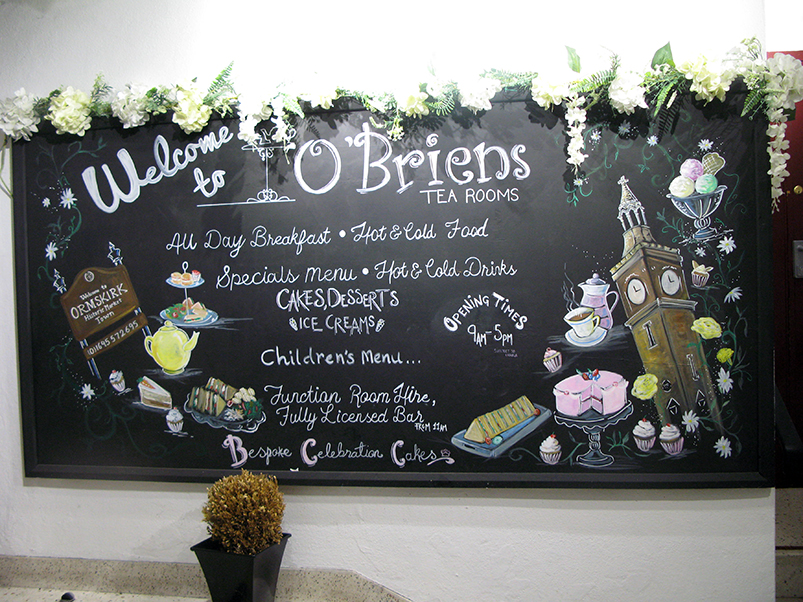 Welcome
to
O'Briens
TEA ROOMS
All Day Breakfast • Hot & Cold Food
Specials Menu • Hot & Cold Drinks
CAKES, DESSERTS
ICE CREAMS
OPENING TIMES
9AM-5PM
Children's Menu...
Function Room Hire,
Fully Licensed Bar
FROM 11AM
Bespoke Celebration Cakes
Welcome to
ORMSKIRK
Historic Market
Town
01695 572695